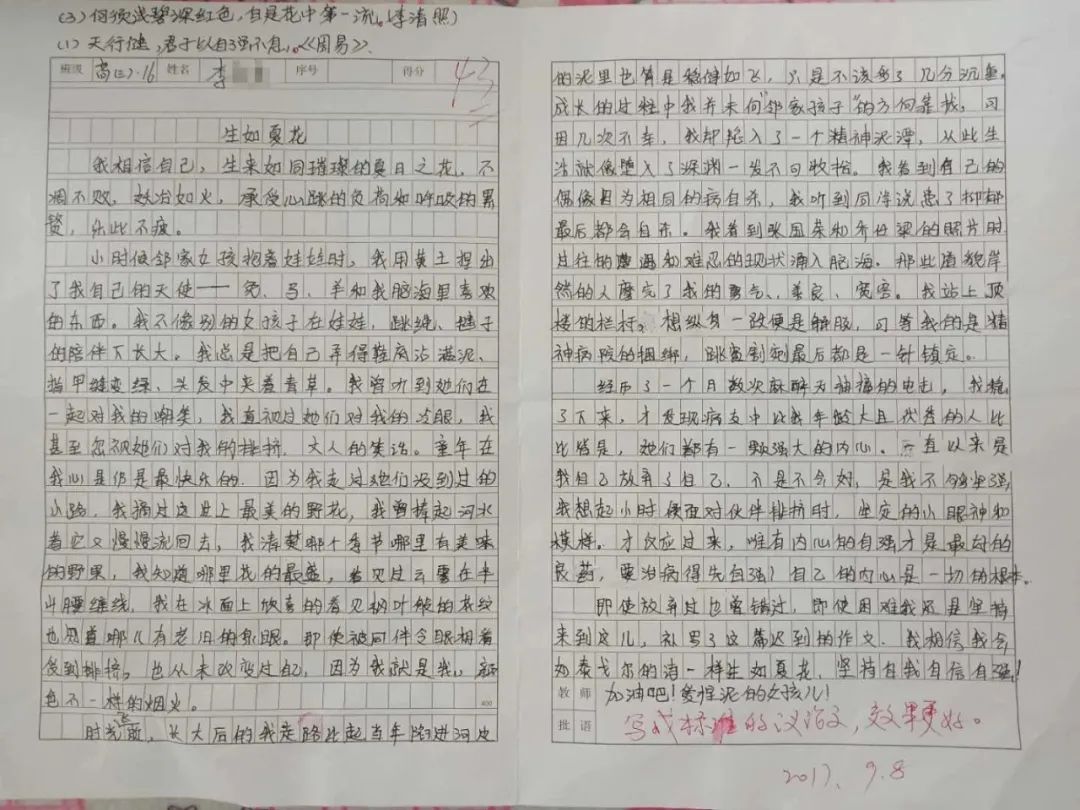 (3) 何须浅碧深红色，自是花中第一流。(李清照)
(1) 天行健，君子以自强不息。《周易》.
班级 高(三)·16 姓名 李 序号 得分 43
生如夏花
我相信自己，生来如同璀璨的夏日之花，不
凋不败，妖冶如火，承受心跳的负荷和呼吸的累
赘，乐此不疲。
小时候邻家女孩抱着娃娃时，我用黄土捏出
了我自己的天使——兔、马、羊和我脑海里喜欢
的东西。我不像别的女孩子在娃娃，跳绳、毽子
的陪伴下长大。我总是把自己弄得鞋底沾满泥、
指甲缝变绿、头发中夹着青草。我曾听到她们在
一起对我的嘲笑，我直视过她们对我的冷眼，我
甚至忽视她们对我的排挤，大人的笑话。童年在
我心是仍是最快乐的，因为我走过她们没到过的
小路，我摘过这世上最美的野花，我曾捧起河水
看它又慢慢流回去，我清楚哪个季节哪里有美味
的野果，我知道哪里花的最盛，看见过云雾在半
山腰缠绕，我在冰面上欣喜的看见树叶般的花纹
也知道哪儿有老旧的泉眼。即使被同伴冷眼相看
受到排挤，也从未改变过自己，因为我就是我，颜
色不一样的烟火。
时光飞逝，长大后的我走路比起当年陷进河边
的泥里也算是稳健如飞，只是不该多了几分沉重。
成长的过程中我并未向“邻家孩子”的方向靠拢，可
因几次不幸，我却陷入了一个精神泥潭，从此生
活就像堕入了深渊一发不可收拾。我看到自己的
偶像因为相同的病自杀，我听到同学说患了抑郁
最后都会自杀。我看到张国荣和乔任梁的照片时
过往的遭遇和难忍的现状涌入脑海。那些道貌岸
然的人磨完了我的勇气、善良、宽容。我站上顶
楼的栏杆，想纵身一跃便是解脱，可等我的是精
神病院的捆绑，跳窗割腕最后都是一针镇定。
经历了一个月数次麻醉无抽搐的电击，我稳
了下来，才发现病友中比我年龄大且优秀的人比
比皆是，她们都有一颗强大的内心。一直以来是
我自己放弃了自己，不是不会好，是我不够坚强
我想起小时候面对伙伴排挤时，坚定的小眼神和
模样，才反应过来，唯有内心的自强才是最好的
良药，要治病得先自强！自己的内心是一切的根本。
即使放弃过也曾错过，即使困难我还是坚持
来到这儿，补写了这篇迟到的作文，我相信我会
如泰戈尔的诗一样生如夏花，坚持自我自信自强！
教师 加油吧！爱捏泥的女孩儿！
批语 写成标准的议论文，效果更好。
400
2017. 9.8